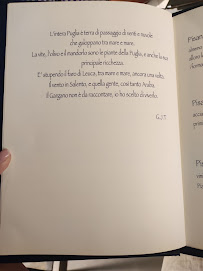 L'intera Puglia è terra di passaggio di venti e nuvole
che galoppano tra mare e mare.
La vite, l'olivo e il mandorlo sono le piante della Puglia, e anche la sua
principale ricchezza.
E' stupendo il faso di Lesca, tra mare e mare, ancora una volta.
Il vento in Salento, e quella gente, così tanto Araba,
il Gargano non è da raccontare, io ho scelto di viverlo.
G.J.T.
Pisar
Pi